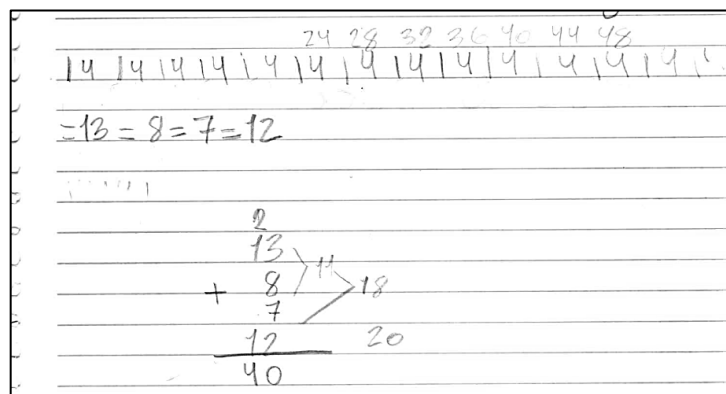 24 28 32 36 40 44 48
|4 |4 |4 |4 |4 |4 |4 |4 |4 |4 |4 |4 |4
=13 = 8 = 7 = 12
2
13
8 11
+ 7 18
12 20
40